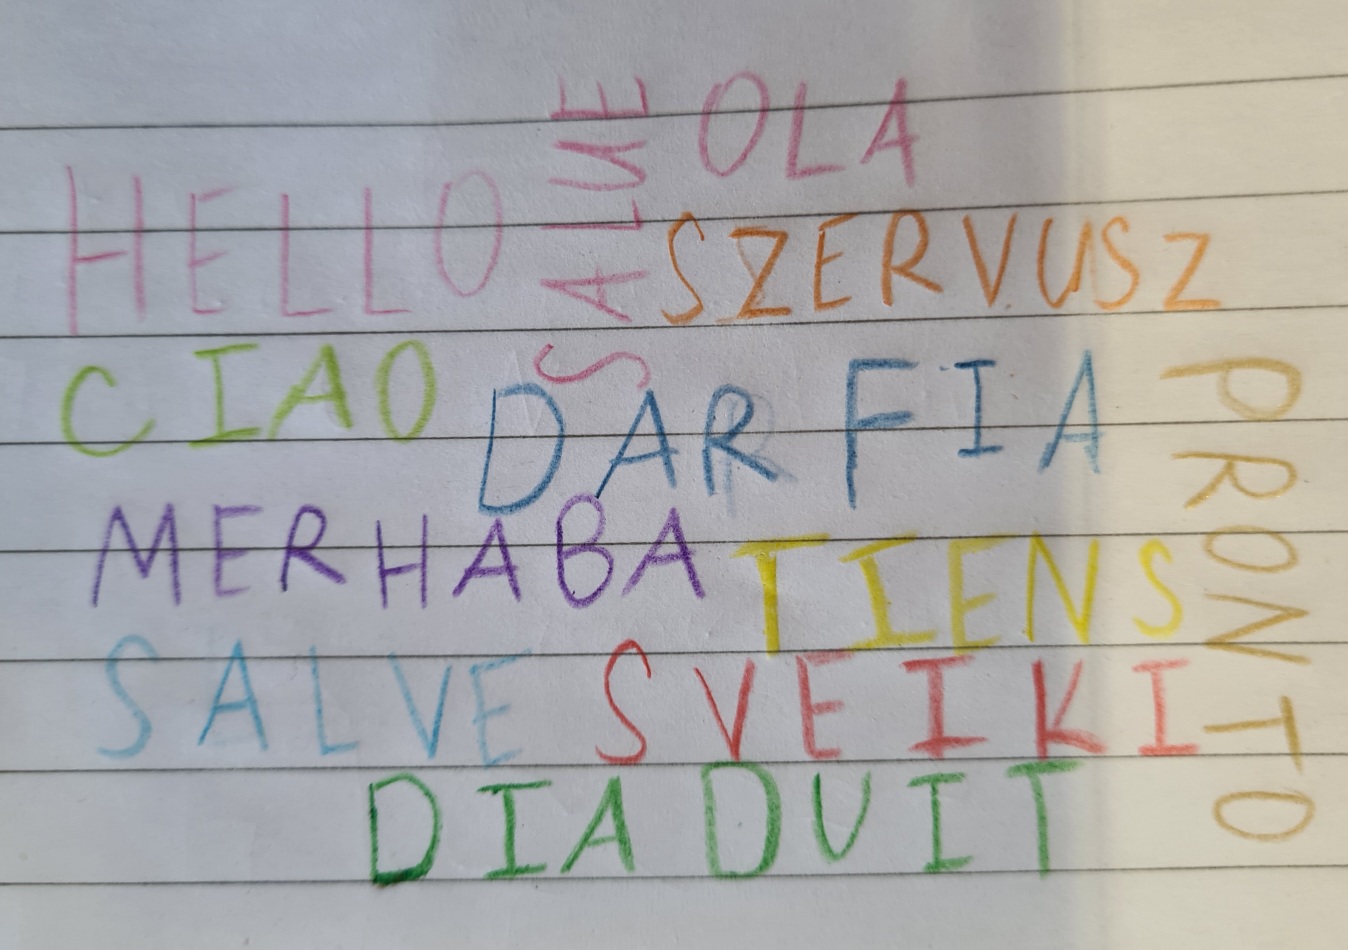 OLA
SALVE
HELLO
SZERVUSZ
CIAO
DAR FIA
PRONTO
MERHABA
TIENS
SALVE
SVEIKI
DIA DUIT